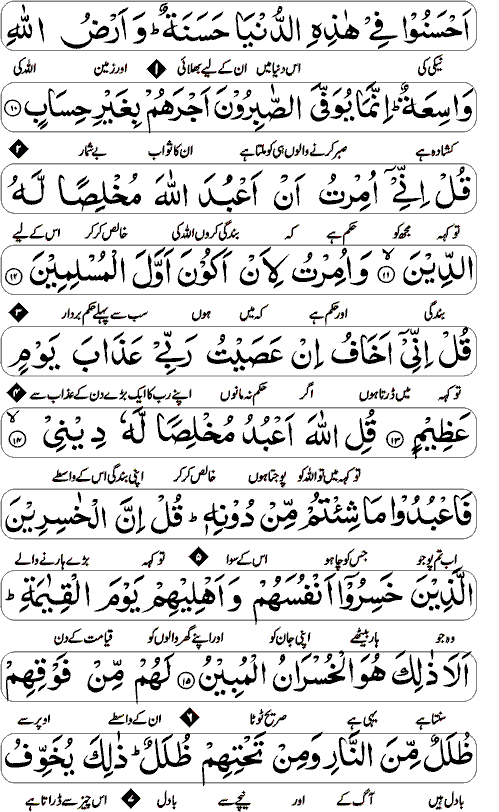 اَحْسَنُوْا فِيْ هٰذِهِ الدُّنْيَا حَسَنَةٌ ؕ وَاَرْضُ اللّٰهِ
نیکی کی اس دنیا میں ان کے لیے بھلائی ۱ اور زمین اللہ کی
وَاسِعَةٌ ؕ اِنَّمَا يُوَفَّى الصّٰبِرُوْنَ اَجْرَهُمْ بِغَيْرِ حِسَابٍ ۱۰
کشادہ ہے صبر کرنے والوں ہی کو ملتا ہے ان کا ثواب بے شمار ۲
قُلْ اِنِّيْۤ اُمِرْتُ اَنْ اَعْبُدَ اللّٰهَ مُخْلِصًا لَّهُ
تو کہہ مجھ کو حکم ہے کہ بندگی کروں اللہ کی خالص کر کر اس کے لیے
الدِّيْنَ ۱۱ وَاُمِرْتُ لِاَنْ اَكُوْنَ اَوَّلَ الْمُسْلِمِيْنَ ۱۲
بندگی اور حکم ہے کہ میں ہوں سب سے پہلے حکم بردار ۳
قُلْ اِنِّيْۤ اَخَافُ اِنْ عَصَيْتُ رَبِّيْ عَذَابَ يَوْمٍ
تو کہہ میں ڈرتا ہوں اگر حکم نہ مانوں اپنے رب کا ایک بڑے دن کے عذاب سے ۴
عَظِيْمٍ ۱۳ قُلِ اللّٰهَ اَعْبُدُ مُخْلِصًا لَّهٗ دِيْنِيْ ۱۴
تو کہہ میں تو اللہ کو پوجتا ہوں خالص کر کر اپنی بندگی اس کے واسطے
فَاعْبُدُوْا مَا شِئْتُمْ مِّنْ دُوْنِهٖ ؕ قُلْ اِنَّ الْخٰسِرِيْنَ
اب تم پوجو جس کو چاہو اس کے سوا ۵ تو کہہ بڑے ہارنے والے
الَّذِيْنَ خَسِرُوْۤا اَنْفُسَهُمْ وَاَهْلِيْهِمْ يَوْمَ الْقِيٰمَةِ ؕ
وہ جو ہار بیٹھے اپنی جان کو اور اپنے گھر والوں کو قیامت کے دن
اَلَا ذٰلِكَ هُوَ الْخُسْرَانُ الْمُبِيْنُ ۱۵ لَهُمْ مِّنْ فَوْقِهِمْ
سنتا ہے یہی ہے صریح ٹوٹا ۶ ان کے واسطے اوپر سے
ظُلَلٌ مِّنَ النَّارِ وَمِنْ تَحْتِهِمْ ظُلَلٌ ؕ ذٰلِكَ يُخَوِّفُ
بادل ہیں آگ کے اور نیچے سے بادل ۷ اس چیز سے ڈراتا ہے